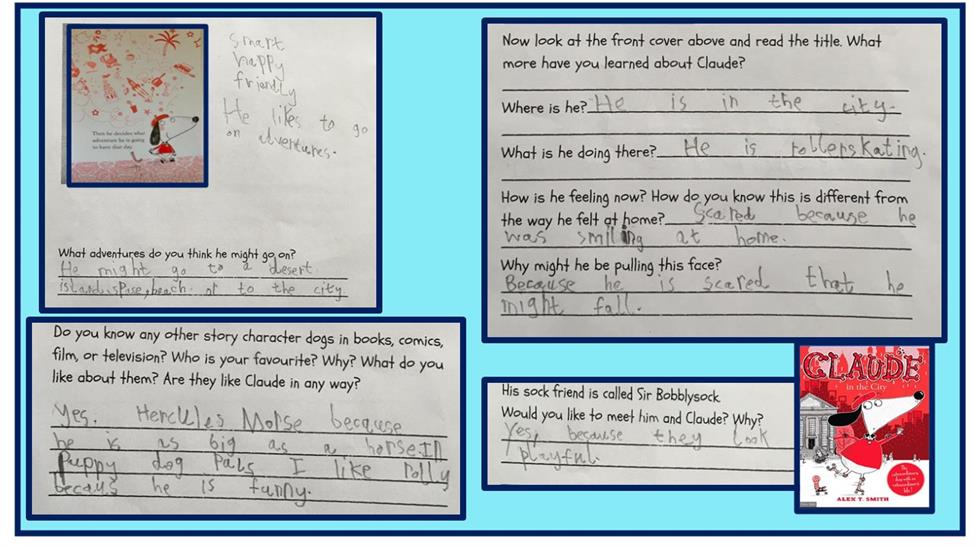 Then he decides what
adventure he is going
to have that day.
smart
happy
friendly
He likes to go
on adventures.
What adventures do you think he might go on?
He might go to a desert
island, spise, beach or to the city.
Do you know any other story character dogs in books, comics,
film, or television? Who is your favourite? Why? What do you
like about them? Are they like Claude in any way?
Yes. Hercules Morse because
he is as big as a horse. In
Puppy dog Pals I like rolly
becaus he is funny.
Now look at the front cover above and read the title. What
more have you learned about Claude?
Where is he? He is in the city.
What is he doing there? He is rollerskating.
How is he feeling now? How do you know this is different from
the way he felt at home? Scared because he
was smiling at home.
Why might he be pulling this face?
Because he is scared that he
might fall.
His sock friend is called Sir Bobblysock
Would you like to meet him and Claude? Why?
Yes, because they look
playful.
CLAUDE
in the City
The
extraordinary
dog with an
extraordinary
life!
ALEX T. SMITH